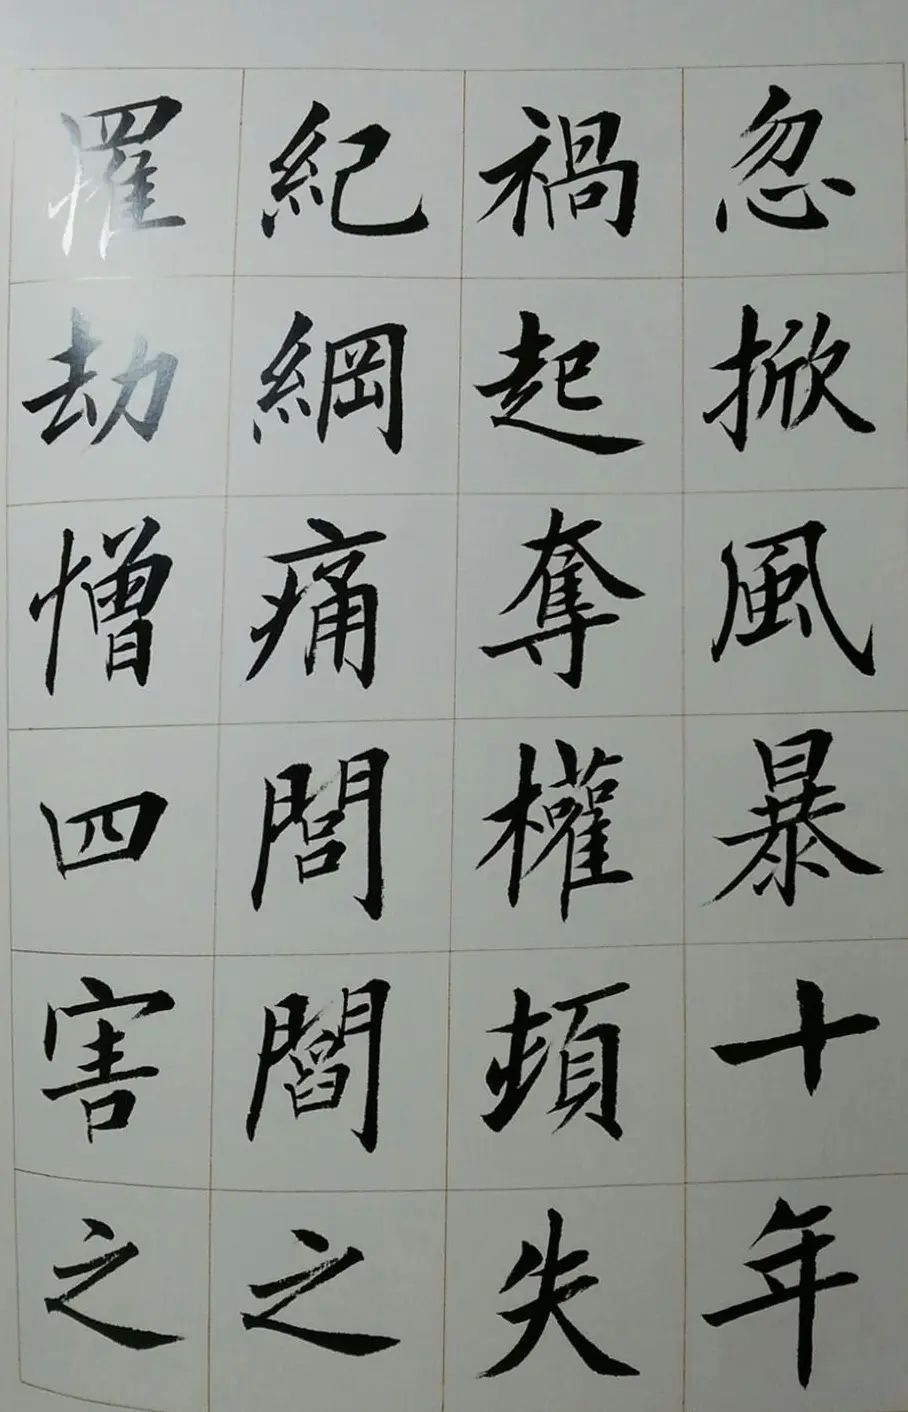 忽掀風暴十年
禍起奪權頓失
紀綱痛閭閻之
罹劫憎四害之